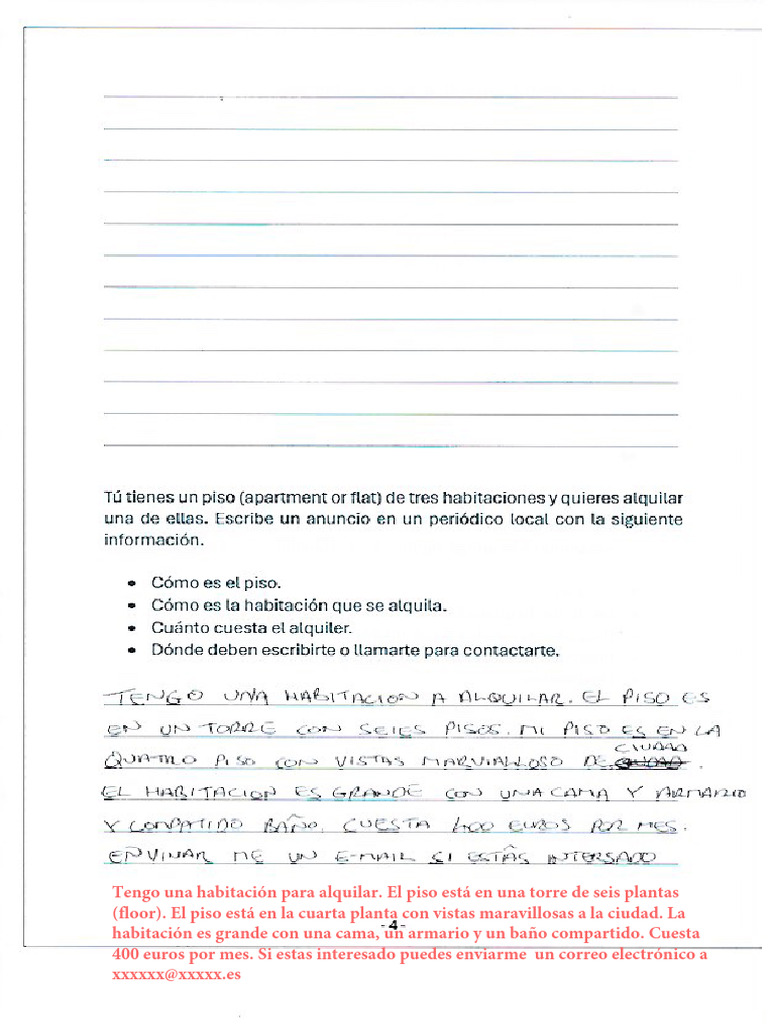 Tú tienes un piso (apartment or flat) de tres habitaciones y quieres alquilar
una de ellas. Escribe un anuncio en un periódico local con la siguiente
información.
• Cómo es el piso.
• Cómo es la habitación que se alquila.
• Cuánto cuesta el alquiler.
• Dónde deben escribirte o llamarte para contactarte.
TENGO UNA HABITACION A ALQUILAR. EL PISO ES
EN UN TORRE CON SEIES PISOS. MI PISO ES EN LA
CIUDAD
QUATRO PISO CON VISTAS MARVIALLOSO DE .
EL HABITACION ES GRANDE CON UNA CAMA Y ARMARIO
Y COMPATIDO BAÑO. CUESTA 400 EUROS POR MES.
ENVINAR ME UN E-MAIL SI ESTÂS INTERSADO
Tengo una habitación para alquilar. El piso está en una torre de seis plantas
(floor). El piso está en la cuarta planta con vistas maravillosas a la ciudad. La
- 4 -
habitación es grande con una cama, un armario y un baño compartido. Cuesta
400 euros por mes. Si estas interesado puedes enviarme un correo electrónico a
xxxxxx@xxxxx.es